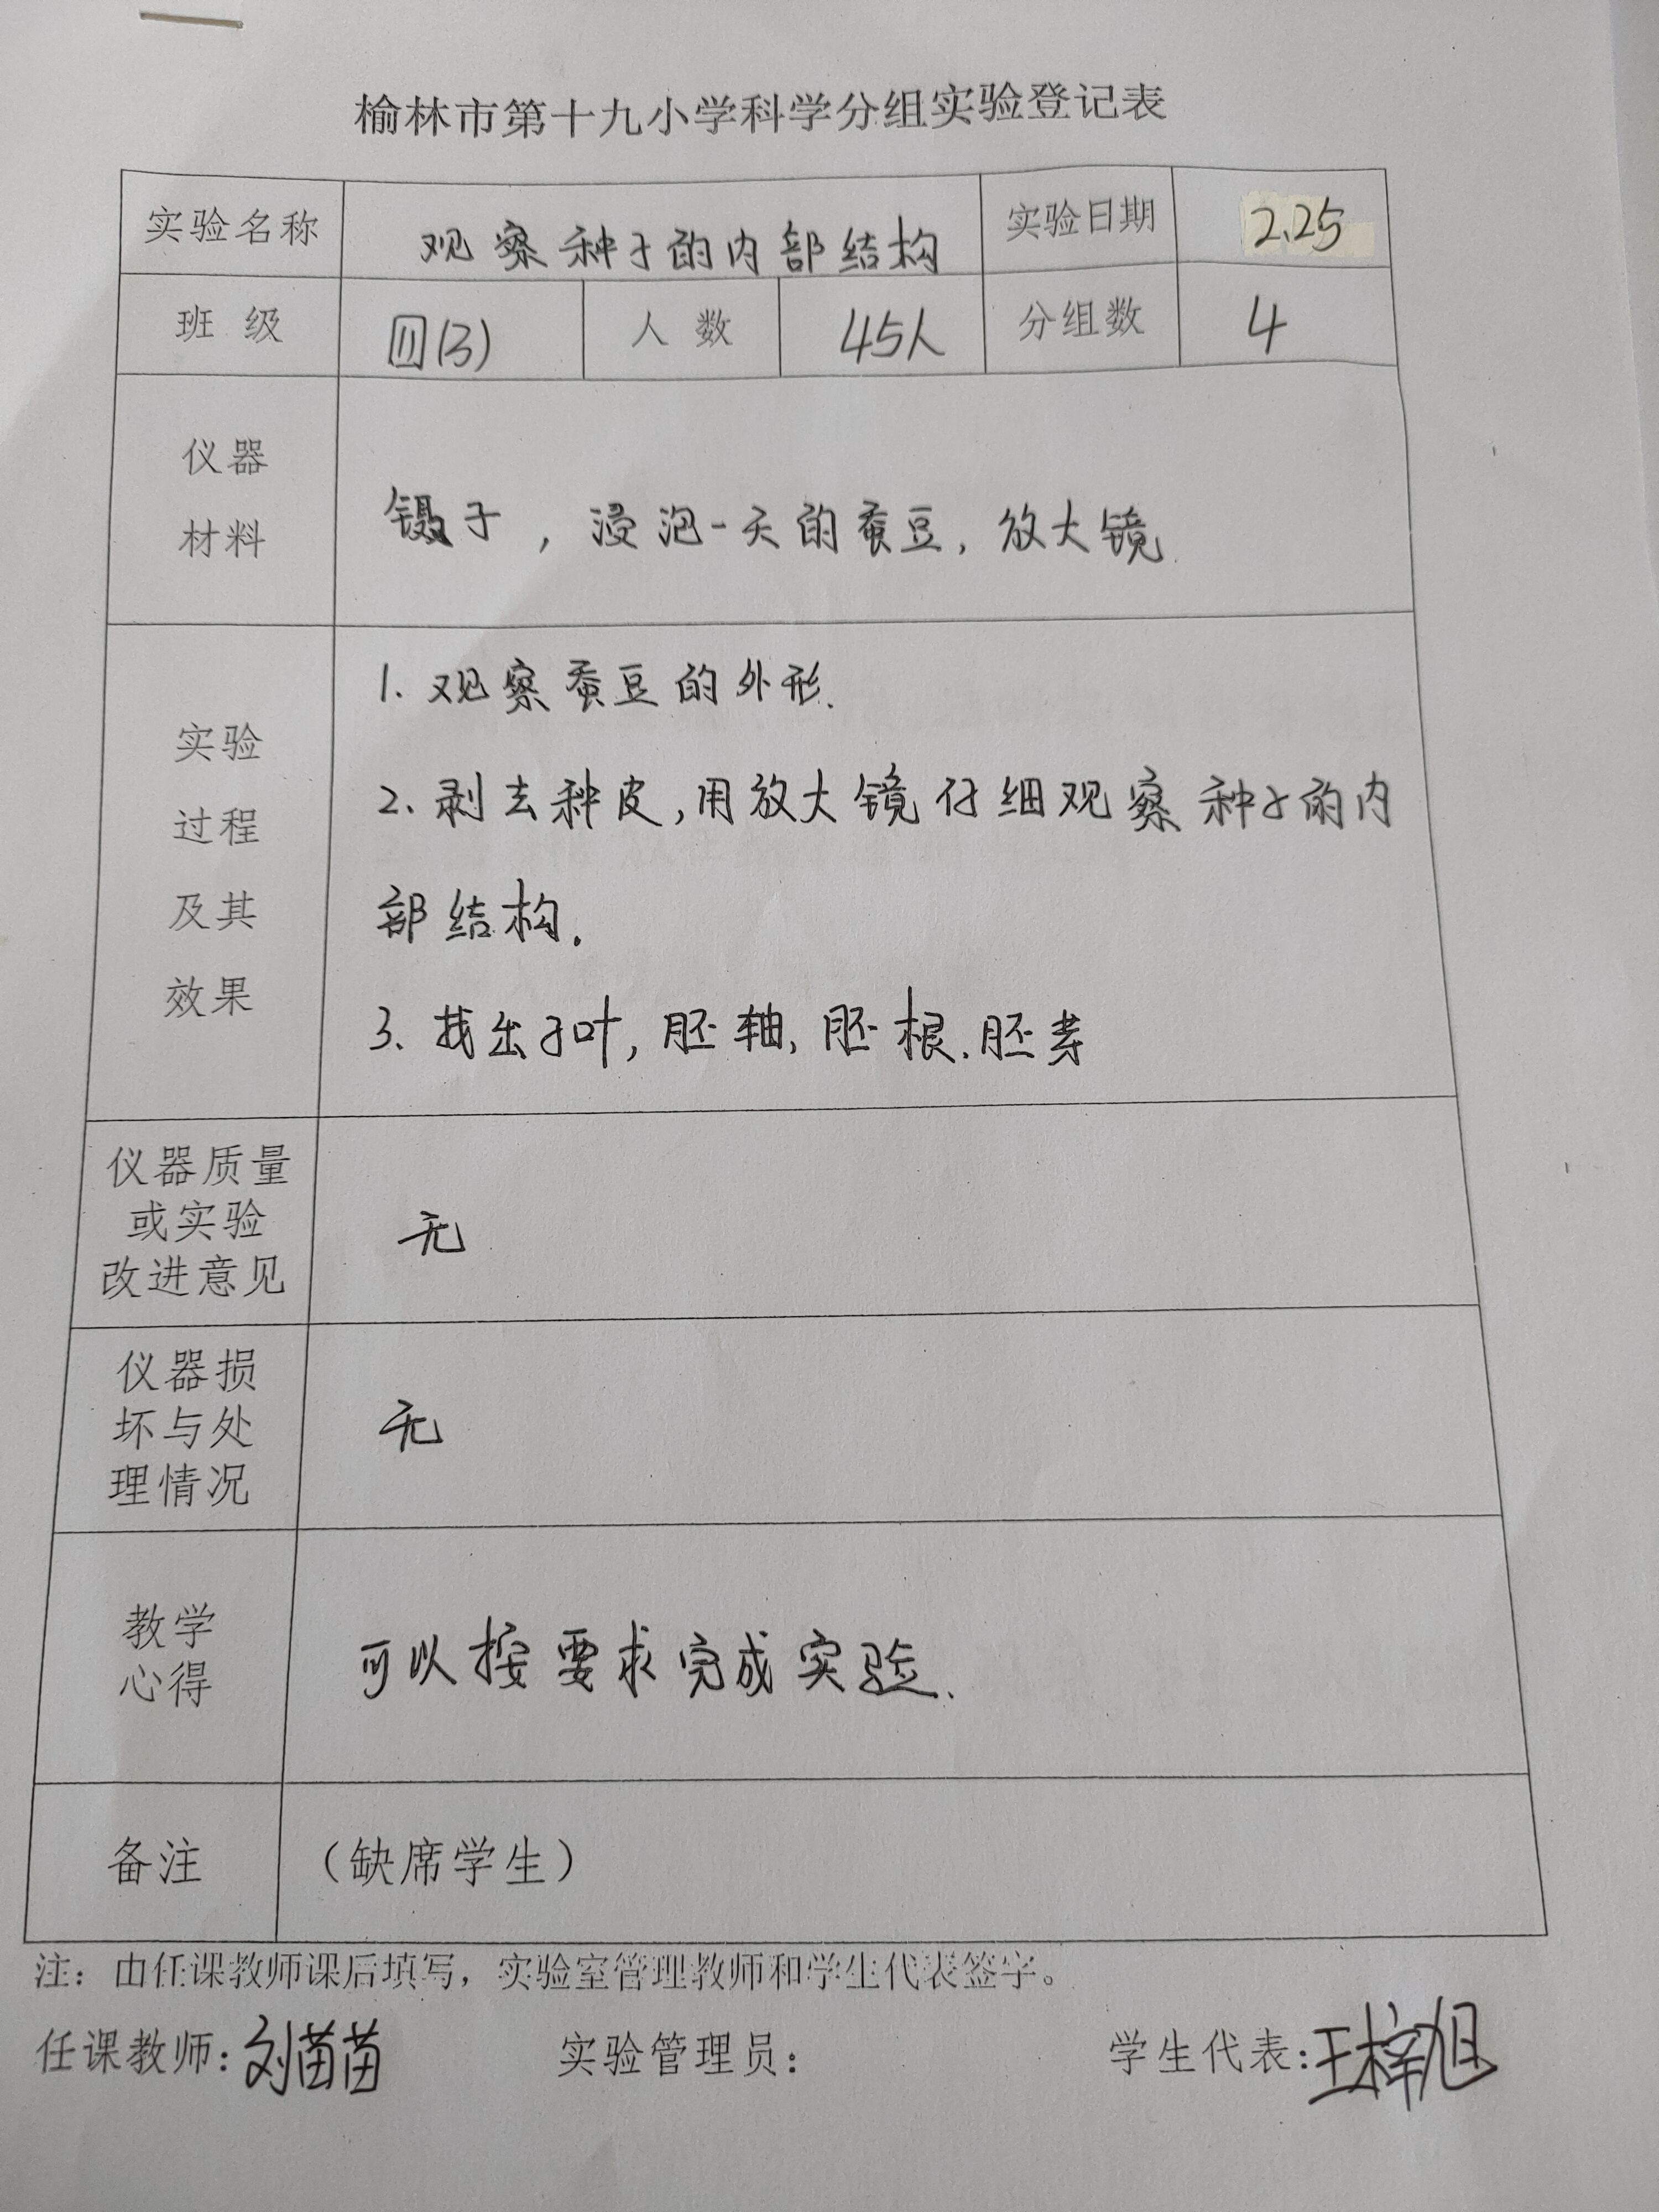 榆林市第十九小学科学分组实验登记表
实验名称 观察种子的内部结构 实验日期 2.25
班级 四(3) 人数 45人 分组数 4
仪器
材料
镊子，浸泡一天的蚕豆，放大镜.
实验
过程
及其
效果
1. 观察蚕豆的外形.
2. 剥去种皮,用放大镜仔细观察种子的内
部结构.
3. 找出子叶,胚轴,胚根.胚芽
仪器质量
或实验
改进意见
无
仪器损
坏与处
理情况
无
教学
心得
可以按要求完成实验.
备注 （缺席学生）
注：由任课教师课后填写，实验室管理教师和学生代表签字。
任课教师：刘苗苗 实验管理员： 学生代表：王梓旭